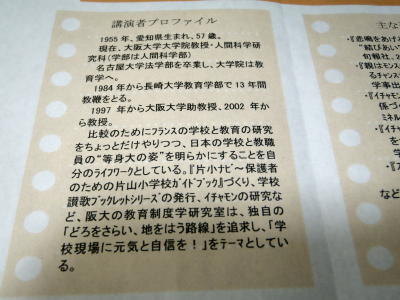 講演者プロファイル
1955 年、愛知県生まれ、57 歳。
現在、大阪大学大学院教授・人間科学研究
科(学部は人間科学部)
名古屋大学法学部を卒業し、大学院は教
育学へ。
1984 年から長崎大学教育学部で 13 年間
教鞭をとる。
1997 年から大阪大学助教授、2002 年か
ら教授。
比較のためにフランスの学校と教育の研究
をちょっとだけやりつつ、日本の学校と教職
員の“等身大の姿”を明らかにすることを自
分のライフワークとしている。『片小ナビ～保護者
のための片山小学校ガイドブック』づくり、学校
讃歌ブックレットシリーズの発行、イチャモンの研究な
ど、阪大の教育制度学研究室は、独自の
「どろをさらい、地をはう路線」を追求し、「学
校現場に元気と自信を！」をテーマとしてい
る。
主な
・『悲鳴をあげる
『結びあい
旬報社、2
・『親はモンス
るチャンス
学事出
・『イチャモン
係づ
ミネル
・『イチ
か
など